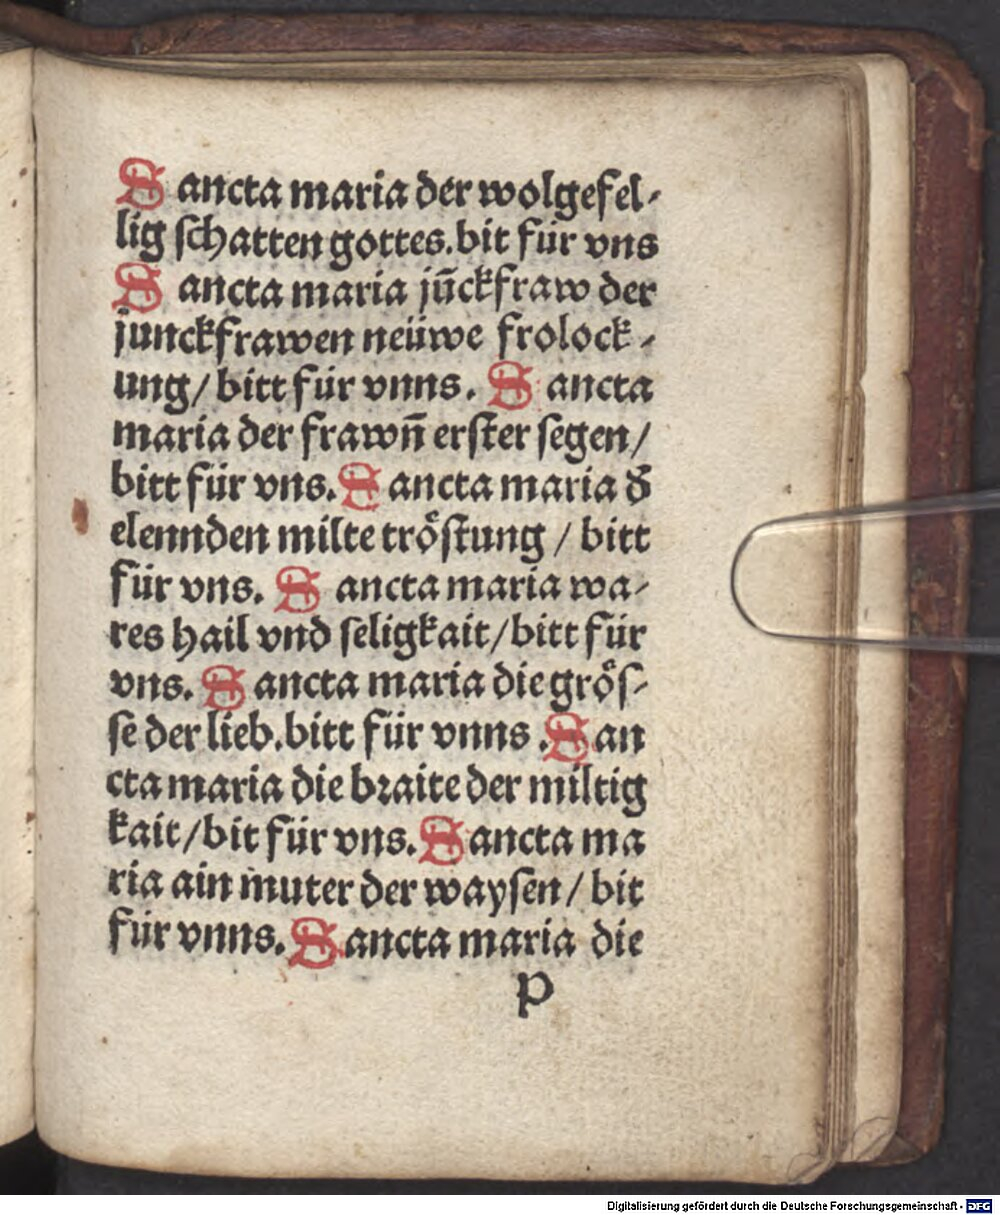 Sancta maria der wolgefel⸗
lig schatten gottes. bit für vns
Sancta maria jūckfraw der
junckfrawen neüwe frolock⸗
ung/ bitt für vnns. Sancta
maria der frawn̄ erster segen/
bitt für vns. Sancta maria d̕
elennden milte trȯ̈stung / bitt
für vns. Sancta maria wa⸗
res hail vnd seligkait/ bitt für
vns. Sancta maria die grös⸗
se der lieb. bitt für vnns. San
cta maria die braite der miltig
kait/ bit für vns. Sancta ma
ria ain muter der waysen/ bit
für vnns. Sancta maria die
p
Digitalisierung gefördert durch die Deutsche Forschungsgemeinschaft - DFG